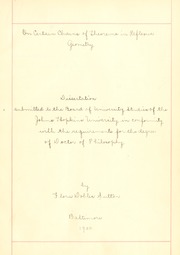 On Certain Classes of Theorems in Reflexive
Geometry
Dissertation
submitted to the Board of University Studies of the
Johns Hopkins University in conformity
with the requirements for the degree
of Doctor of Philosophy
by
Flora Dobler Sutton
Baltimore